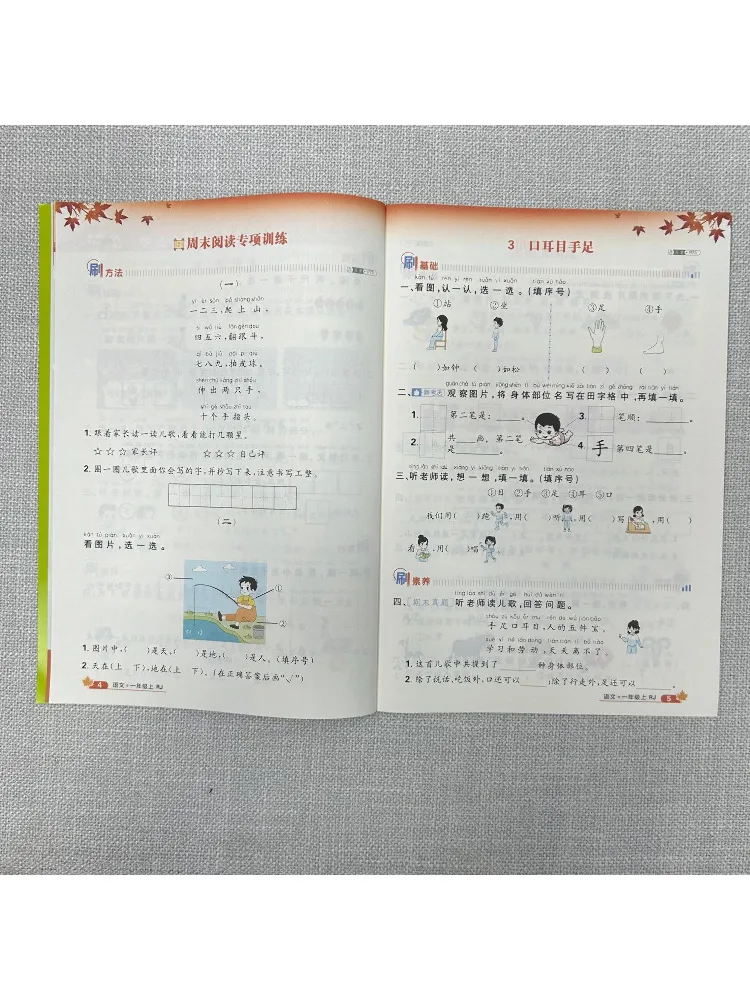 周末阅读专项训练
刷 方法
(一)
yī èr sān pá shàng shān
一二三,爬上山。
sì wǔ liù fān gēn dou
四五六,翻跟斗。
qī bā jiǔ pāi pí qiú
七八九,拍皮球。
shēn chū liǎng zhī shǒu
伸出两只手,
shí gè shǒu zhǐ tou
十个手指头。
1. 跟着家长读一读儿歌,看看能打几颗星。
☆☆☆家长评 ☆☆☆自己评
2. 圈一圈儿歌里面你会写的字,并抄写下来,注意书写工整。
(二)
kàn tú piàn xuǎn yi xuǎn
看图片,选一选。
③
①
②
1. 图片中,( )是天,( )是地,( )是人。(填序号)
2. 天在(上 下),地在(上 下)。(在正确答案后画“√”)
4 语文·一年级上 RJ
3 口耳目手足
刷 基础
kàn tú rèn yi rèn xuǎn yi xuǎn tián xù hào
一、看图,认一认,选一选。(填序号)
①站 ②坐 ③足 ④手
( )如钟 ( )如松 ( ) ( )
guān chá tú piàn jiāng shēn tǐ bù wèi míng xiě zài tián zì gé zhōng zài tián yi tián
二、新考法 观察图片,将身体部位名写在田字格中,再填一填。
1. 第二笔是:。
3. 笔顺:。
2. 共画。第二笔是。
4. 手 第四笔是。
tīng lǎo shī dú xiǎng yi xiǎng tián yi tián tián xù hào
三、听老师读,想一想,填一填。(填序号)
①目 ②手 ③足 ④耳 ⑤口
我们用( )跑,用( )听,用( )写,用( )
看,用( )唱。
刷 素养
tīng lǎo shī dú ér gē huí dá wèn tí
四、[期末真题]听老师读儿歌,回答问题。
shǒu zú kǒu ěr mù rén de wǔ jiàn bǎo
手足口耳目,人的五件宝。
xué xí hé láo dòng tiān tiān lí bù liǎo
学习和劳动,天天离不了。
1. 这首儿歌中共提到了种身体部位。
2. 除了说话、吃饭外,口还可以;除了行走外,足还可以。
语文·一年级上 RJ 5